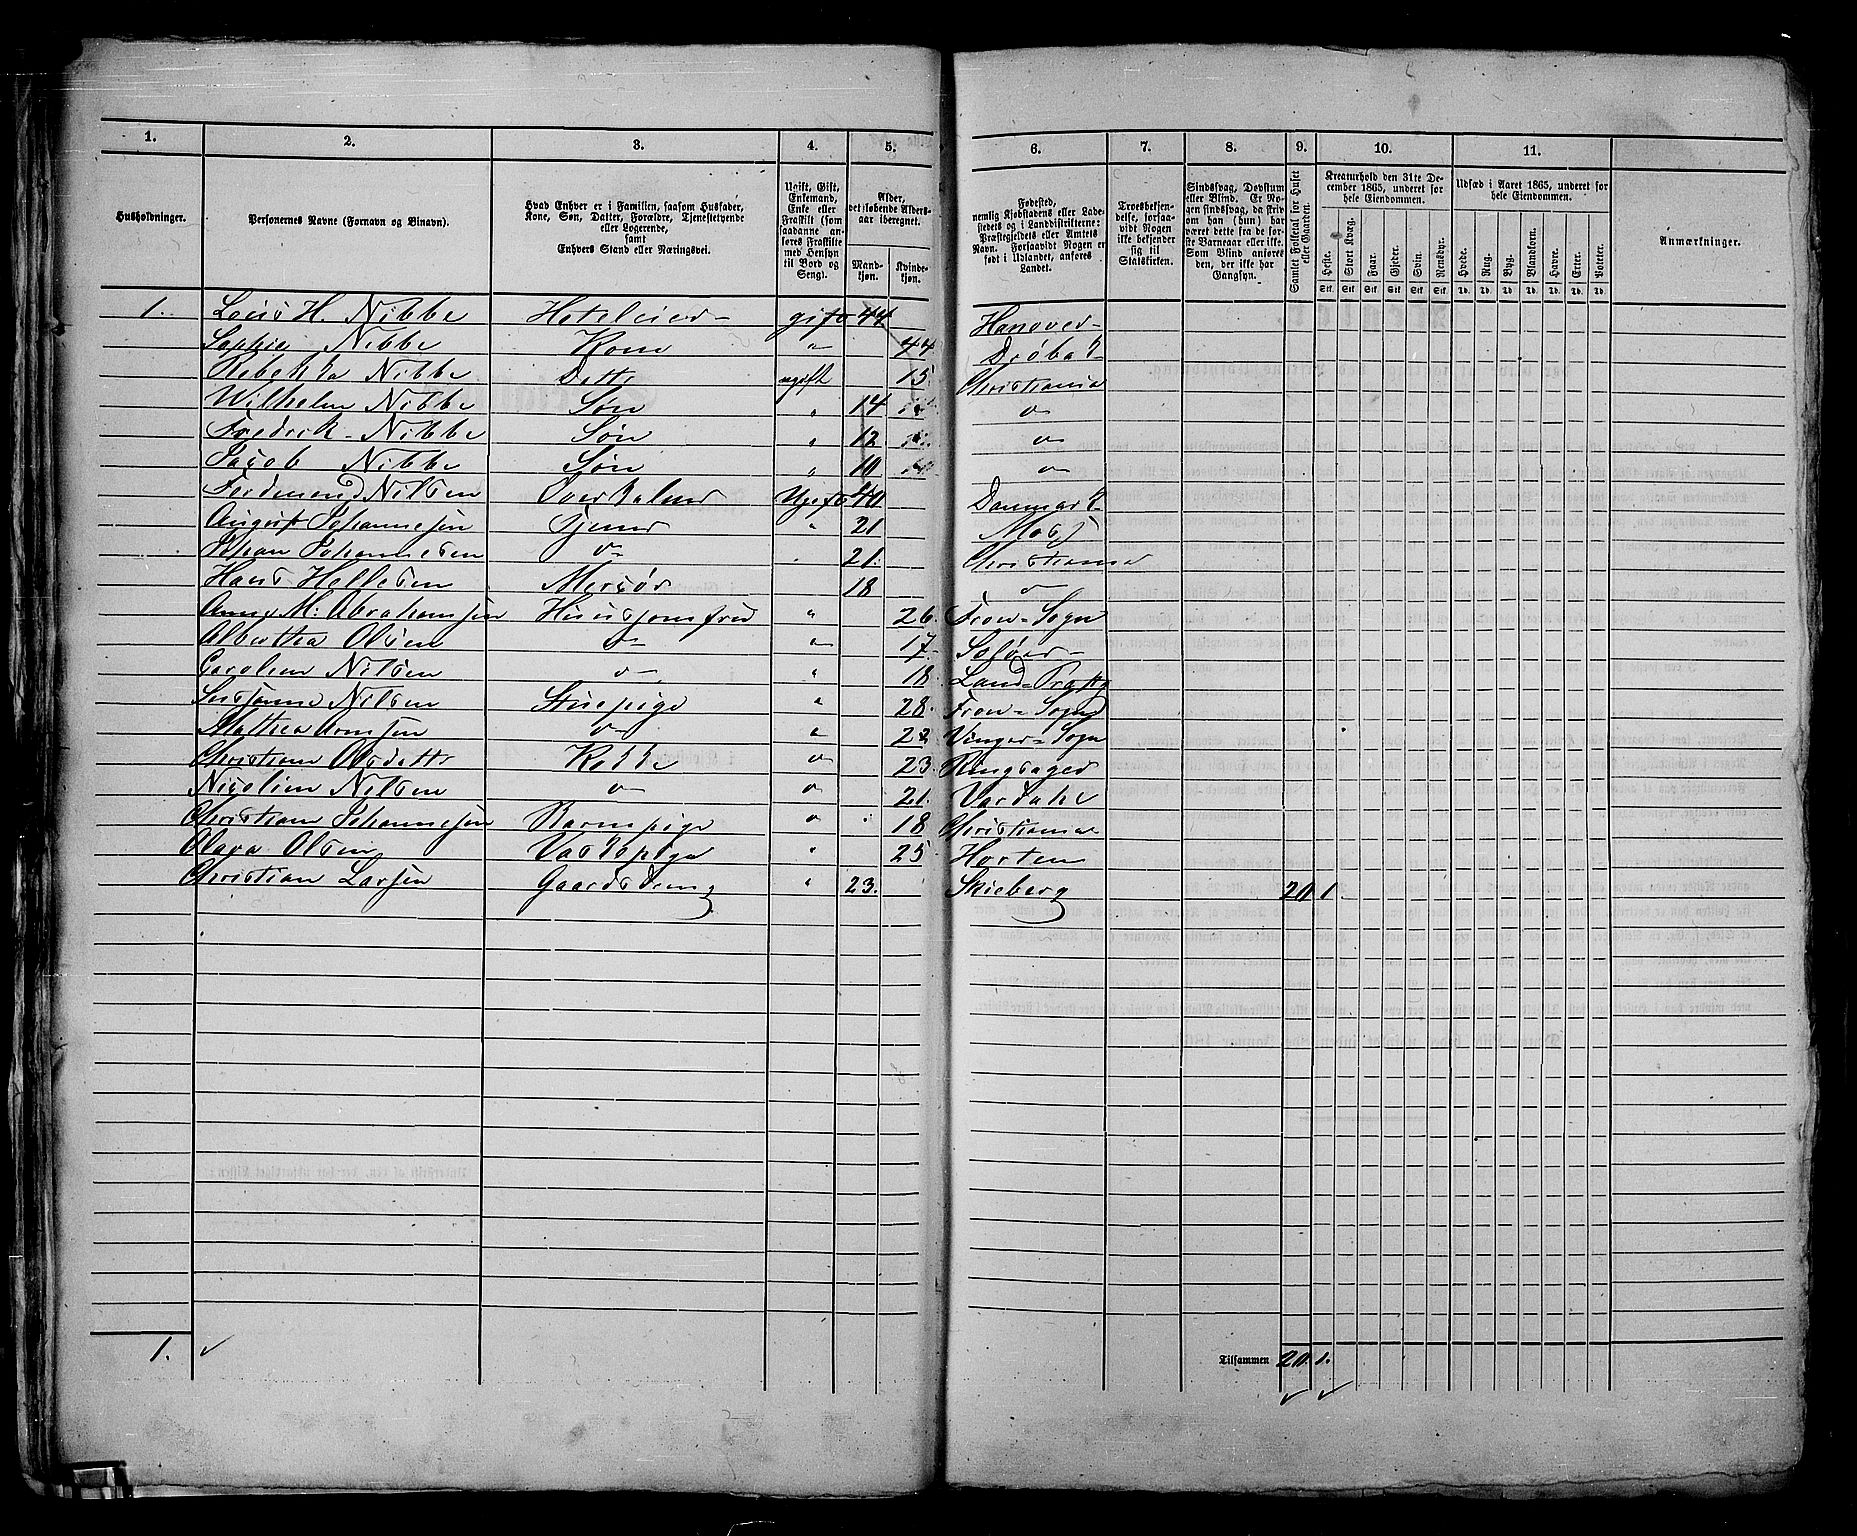 1. 2. 3. 4. 5. 6. 7. 8. 9. 10. 11.
Husholdninger.
Personernes Navne (Fornavn og Binavn).
Hvad Enhver er i Familien, saasom Husfader, Kone, Søn, Datter, Forældre, Tjenestetyende eller Logerende, samt Enhvers Stand eller Næringsvei.
Ugift, Gift, Enkemand, Enke eller Fraskilt (som saadanne anføres Fraskilte med Hensyn til Bord og Seng).
Alder, det løbende Aldersaar iberegnet.
Mandkjøn. Kvindekjøn.
Fødested, nemlig Kjøbstadens eller Ladestedets og i Landdistrikterne: Præstegjeldets eller Amtets Navn. Forsaavidt Nogen er født i Udlandet, anføres Landet.
Troesbekjendelse, forsaavidt Nogen ikke bekjender sig til Statskirken.
Sindssvag, Døvstum eller Blind. Er Nogen sindssvag, da skrives om han (hun) har været dette fra de første Barneaar eller ikke. Som Blind anføres den, der ikke har Gangsyn.
Samlet Folketal for Huset eller Gaarden.
Kreaturhold den 31te December 1865, underet for hele Eiendommen.
Heste. Stort Kvæg. Faar. Gjeder. Svin. Rensdyr.
Stk. Stk. Stk. Stk. Stk. Stk.
Udsæd i Aaret 1865, underet for hele Eiendommen.
Hvede. Rug. Byg. Blandkorn. Havre. Erter. Poteter.
Td. Td. Td. Td. Td. Td. Td.
Anmærkninger.
1. Louis H. Nibbe Hoteleier gift 44 Hanover
Sophie Nibbe Kone " 44 Drøbak
Rebekka Nibbe Dattr ugift 15 Christiania
Wilhelm Nibbe Søn " 14 "
Fredrik Nibbe Søn " 12 "
Jacob Nibbe Søn " 10 "
Ferdinend Nilsen Overkelner Ugift 40 Danmark
August Johannesen Tjener " 21 Moss
Johan Johannesen " 21. Christiania
Hans Hellesen 18 "
Anne M. Abrahamsen Huusjomfru " 26. Fron Sogn
Albertha Olsen " " 17 Soløer
Carolin Nilsen " " 18 Land
Nilsen Stuepige " 28. Fron Sogn
Mathea " " 22 Vinger Sogn
Christiane Olsdattr Kokke " 23. Ringsager
Nicolin Nilsen " " 21. Vardahl
Christiane Johannesen Barnepige " 18 Christiania
Olava Olsen Vaskepige " 25 Horten
Christian Larsen Gaardsdreng " 23. Skieberg 20 1
1.
Tilsammen 20. 1.